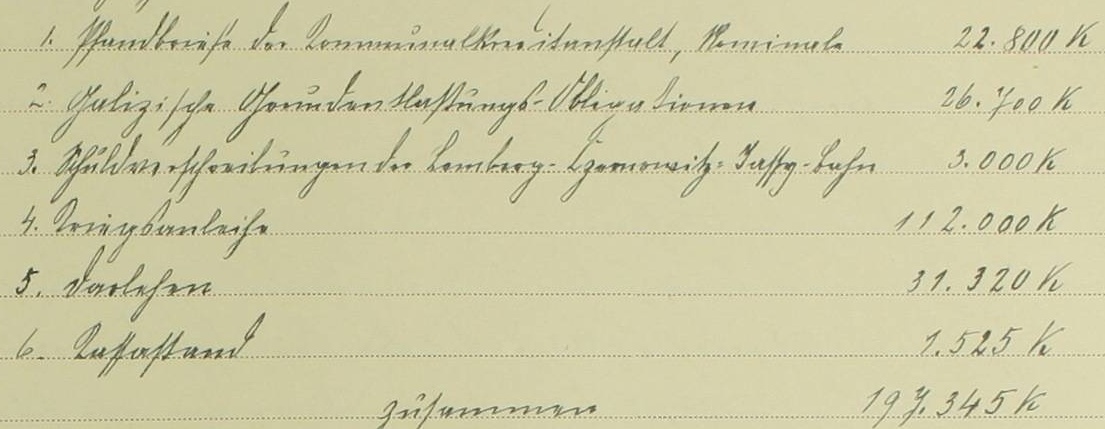 1. Pfandbriefe der Kommunalkreditanstalt, Nominale 22.800 K
2. Galizische Grundentlastungs-Obligationen 26.700 K
3. Schuldverschreibungen der Lemberg-Czernowitz-Jassy-Bahn 3.000 K
4. Kriegsanleihe 112.000 K
5. Darlehen 31.320 K
6. Kassastand 1.525 K
zusammen 197.345 K